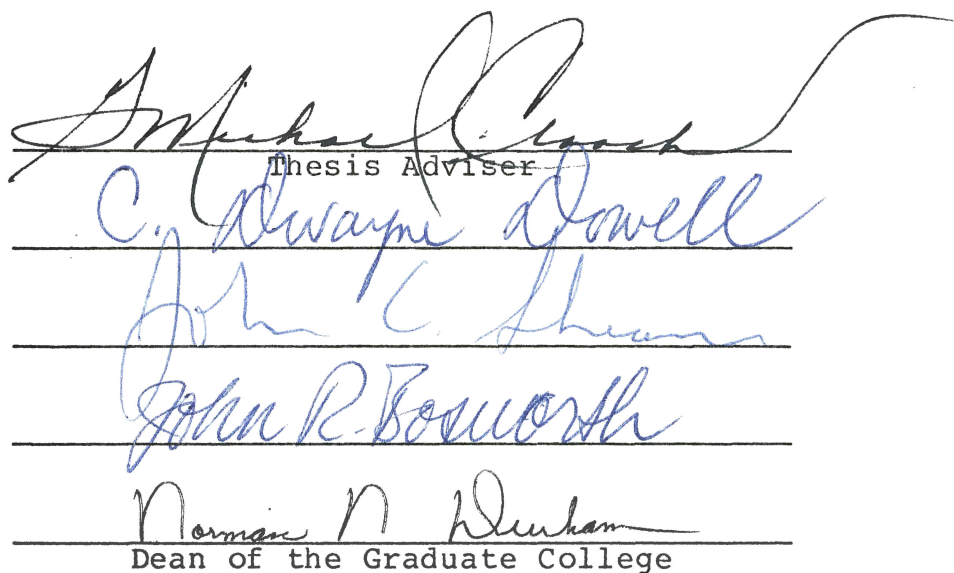 Michael
Thesis Adviser
C. Dwayne Dowell
John C. Shearer
John R. Bosworth
Norman N Durham
Dean of the Graduate College